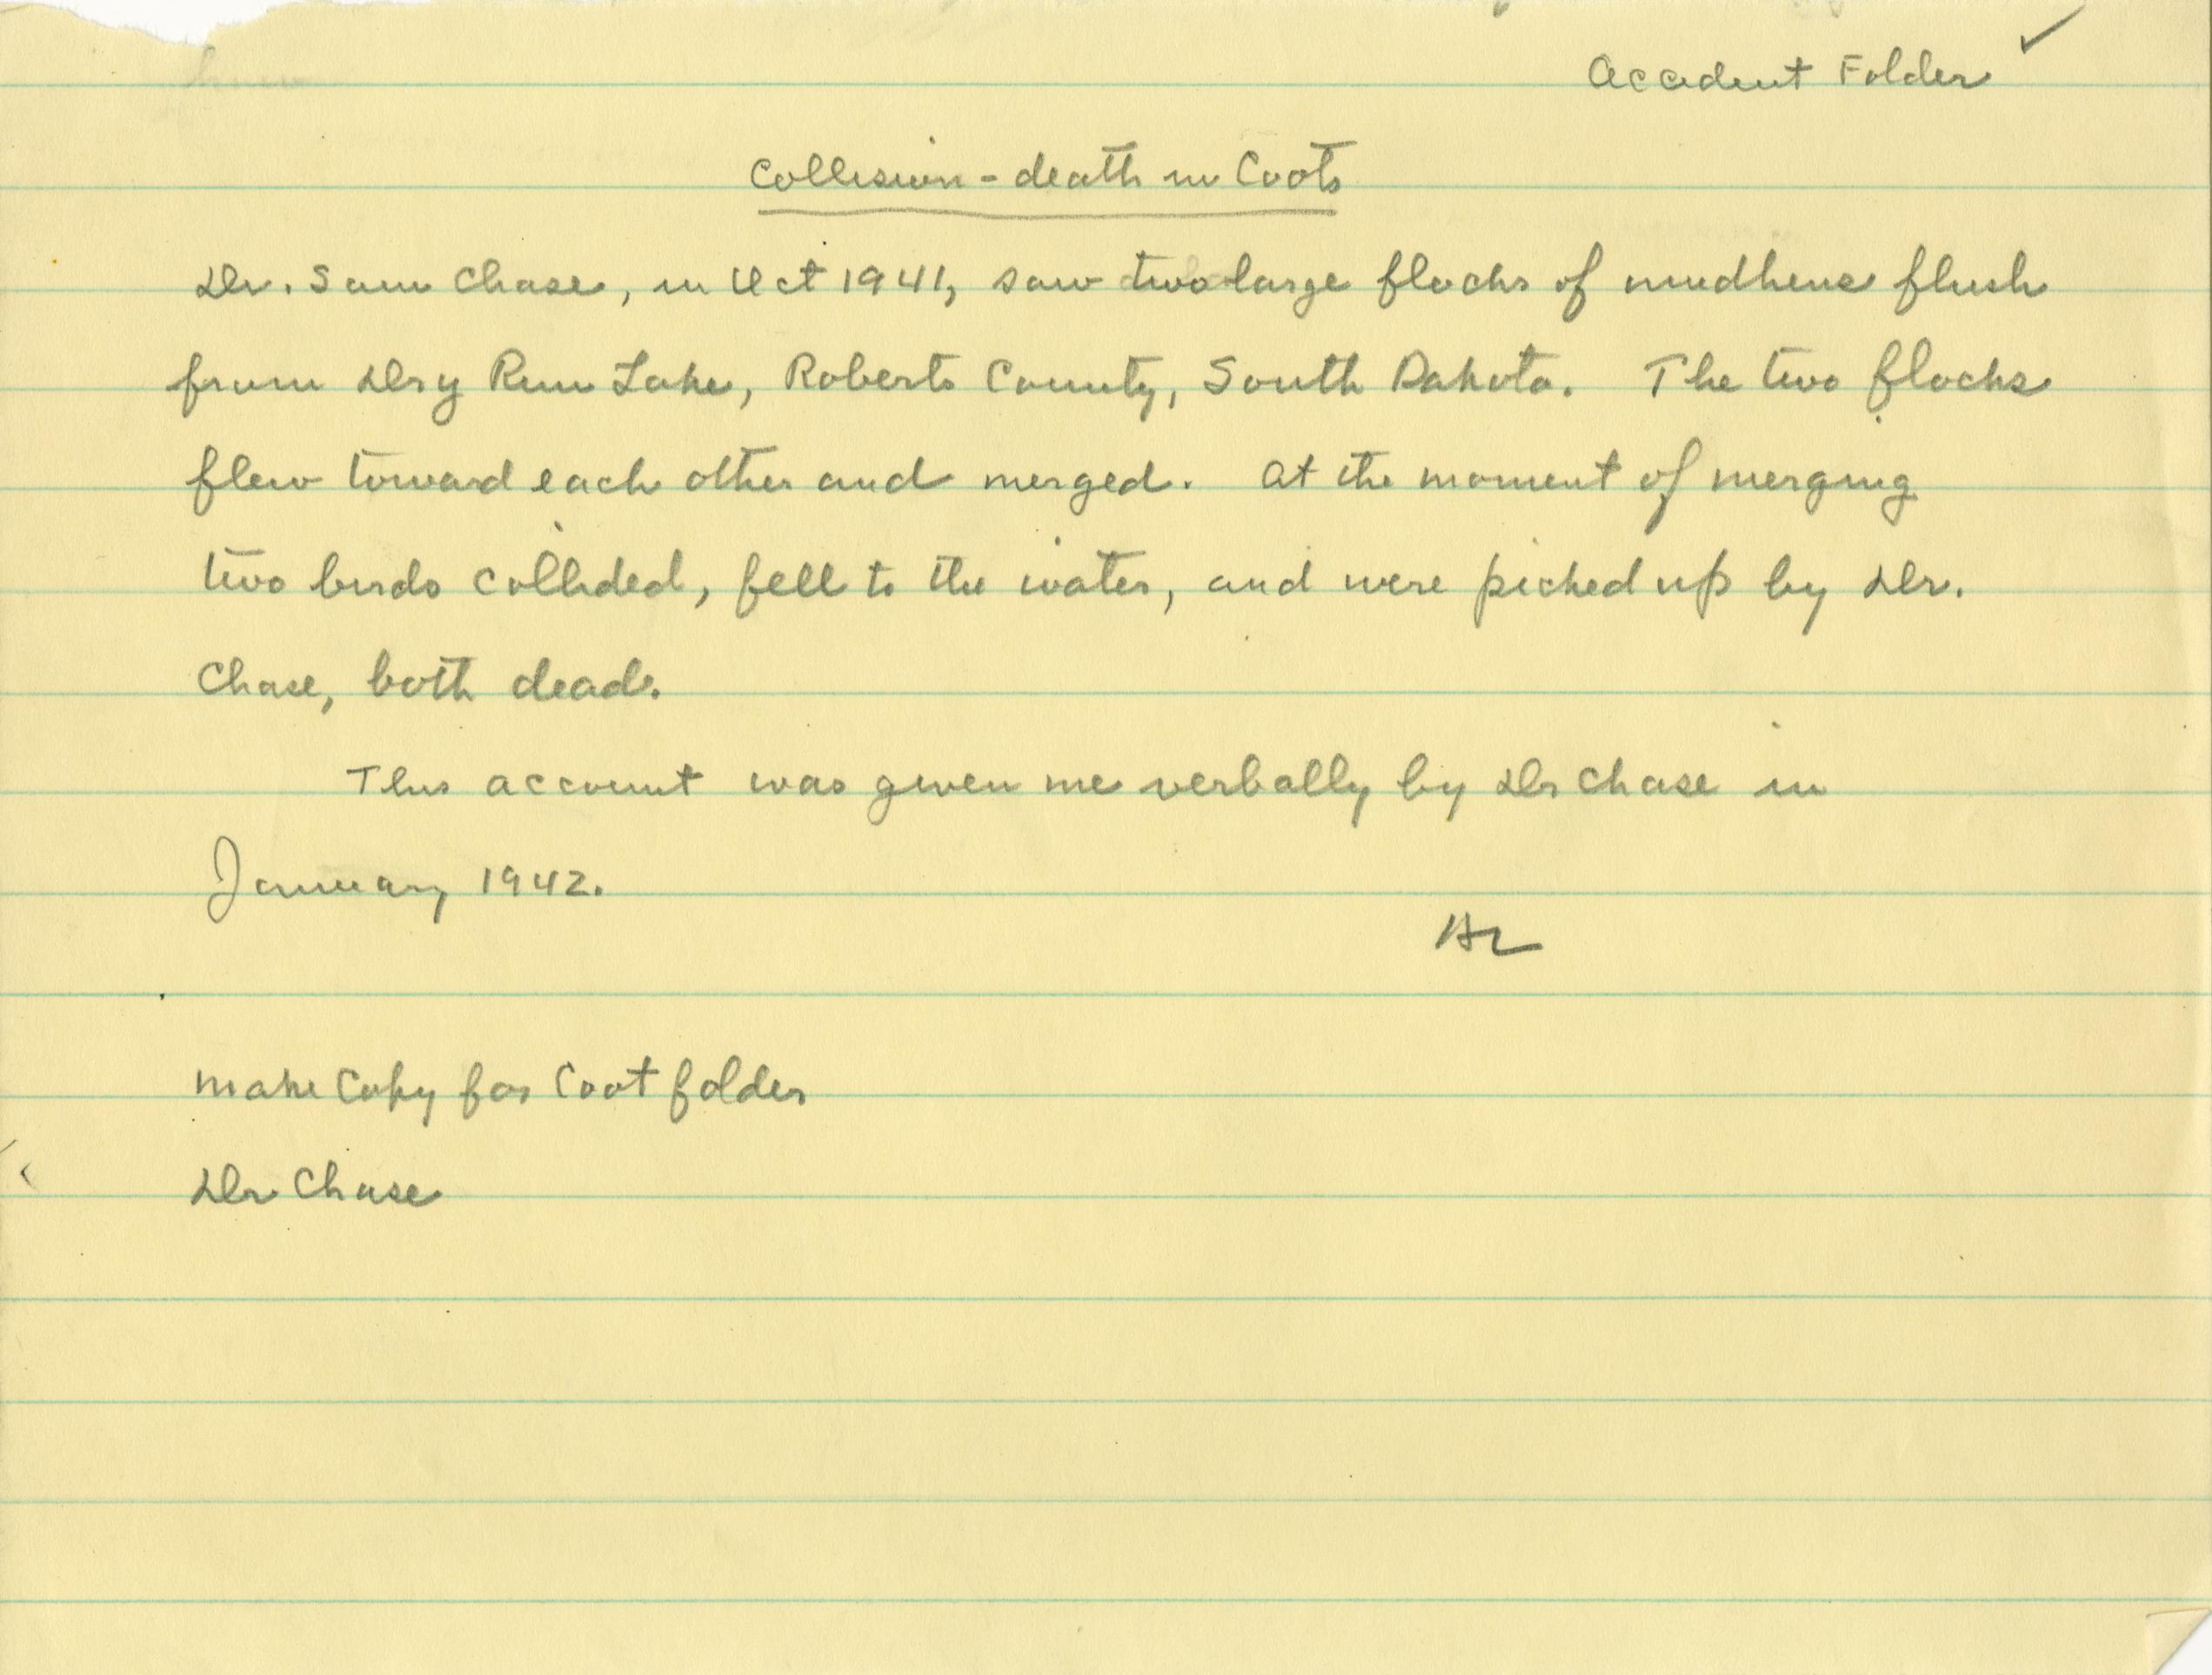 Accident Folder ✓
Collision - death in Coots
Dr. Sam Chase, in Oct 1941, saw two large flocks of mudhens flush
from Dry Run Lake, Roberts County, South Dakota. The two flocks
flew toward each other and merged. At the moment of merging
two birds collided, fell to the water, and were picked up by Dr.
Chase, both dead.
This account was given me verbally by Dr Chase in
January 1942.
AL
Make Copy for Coot folder
Dr Chase